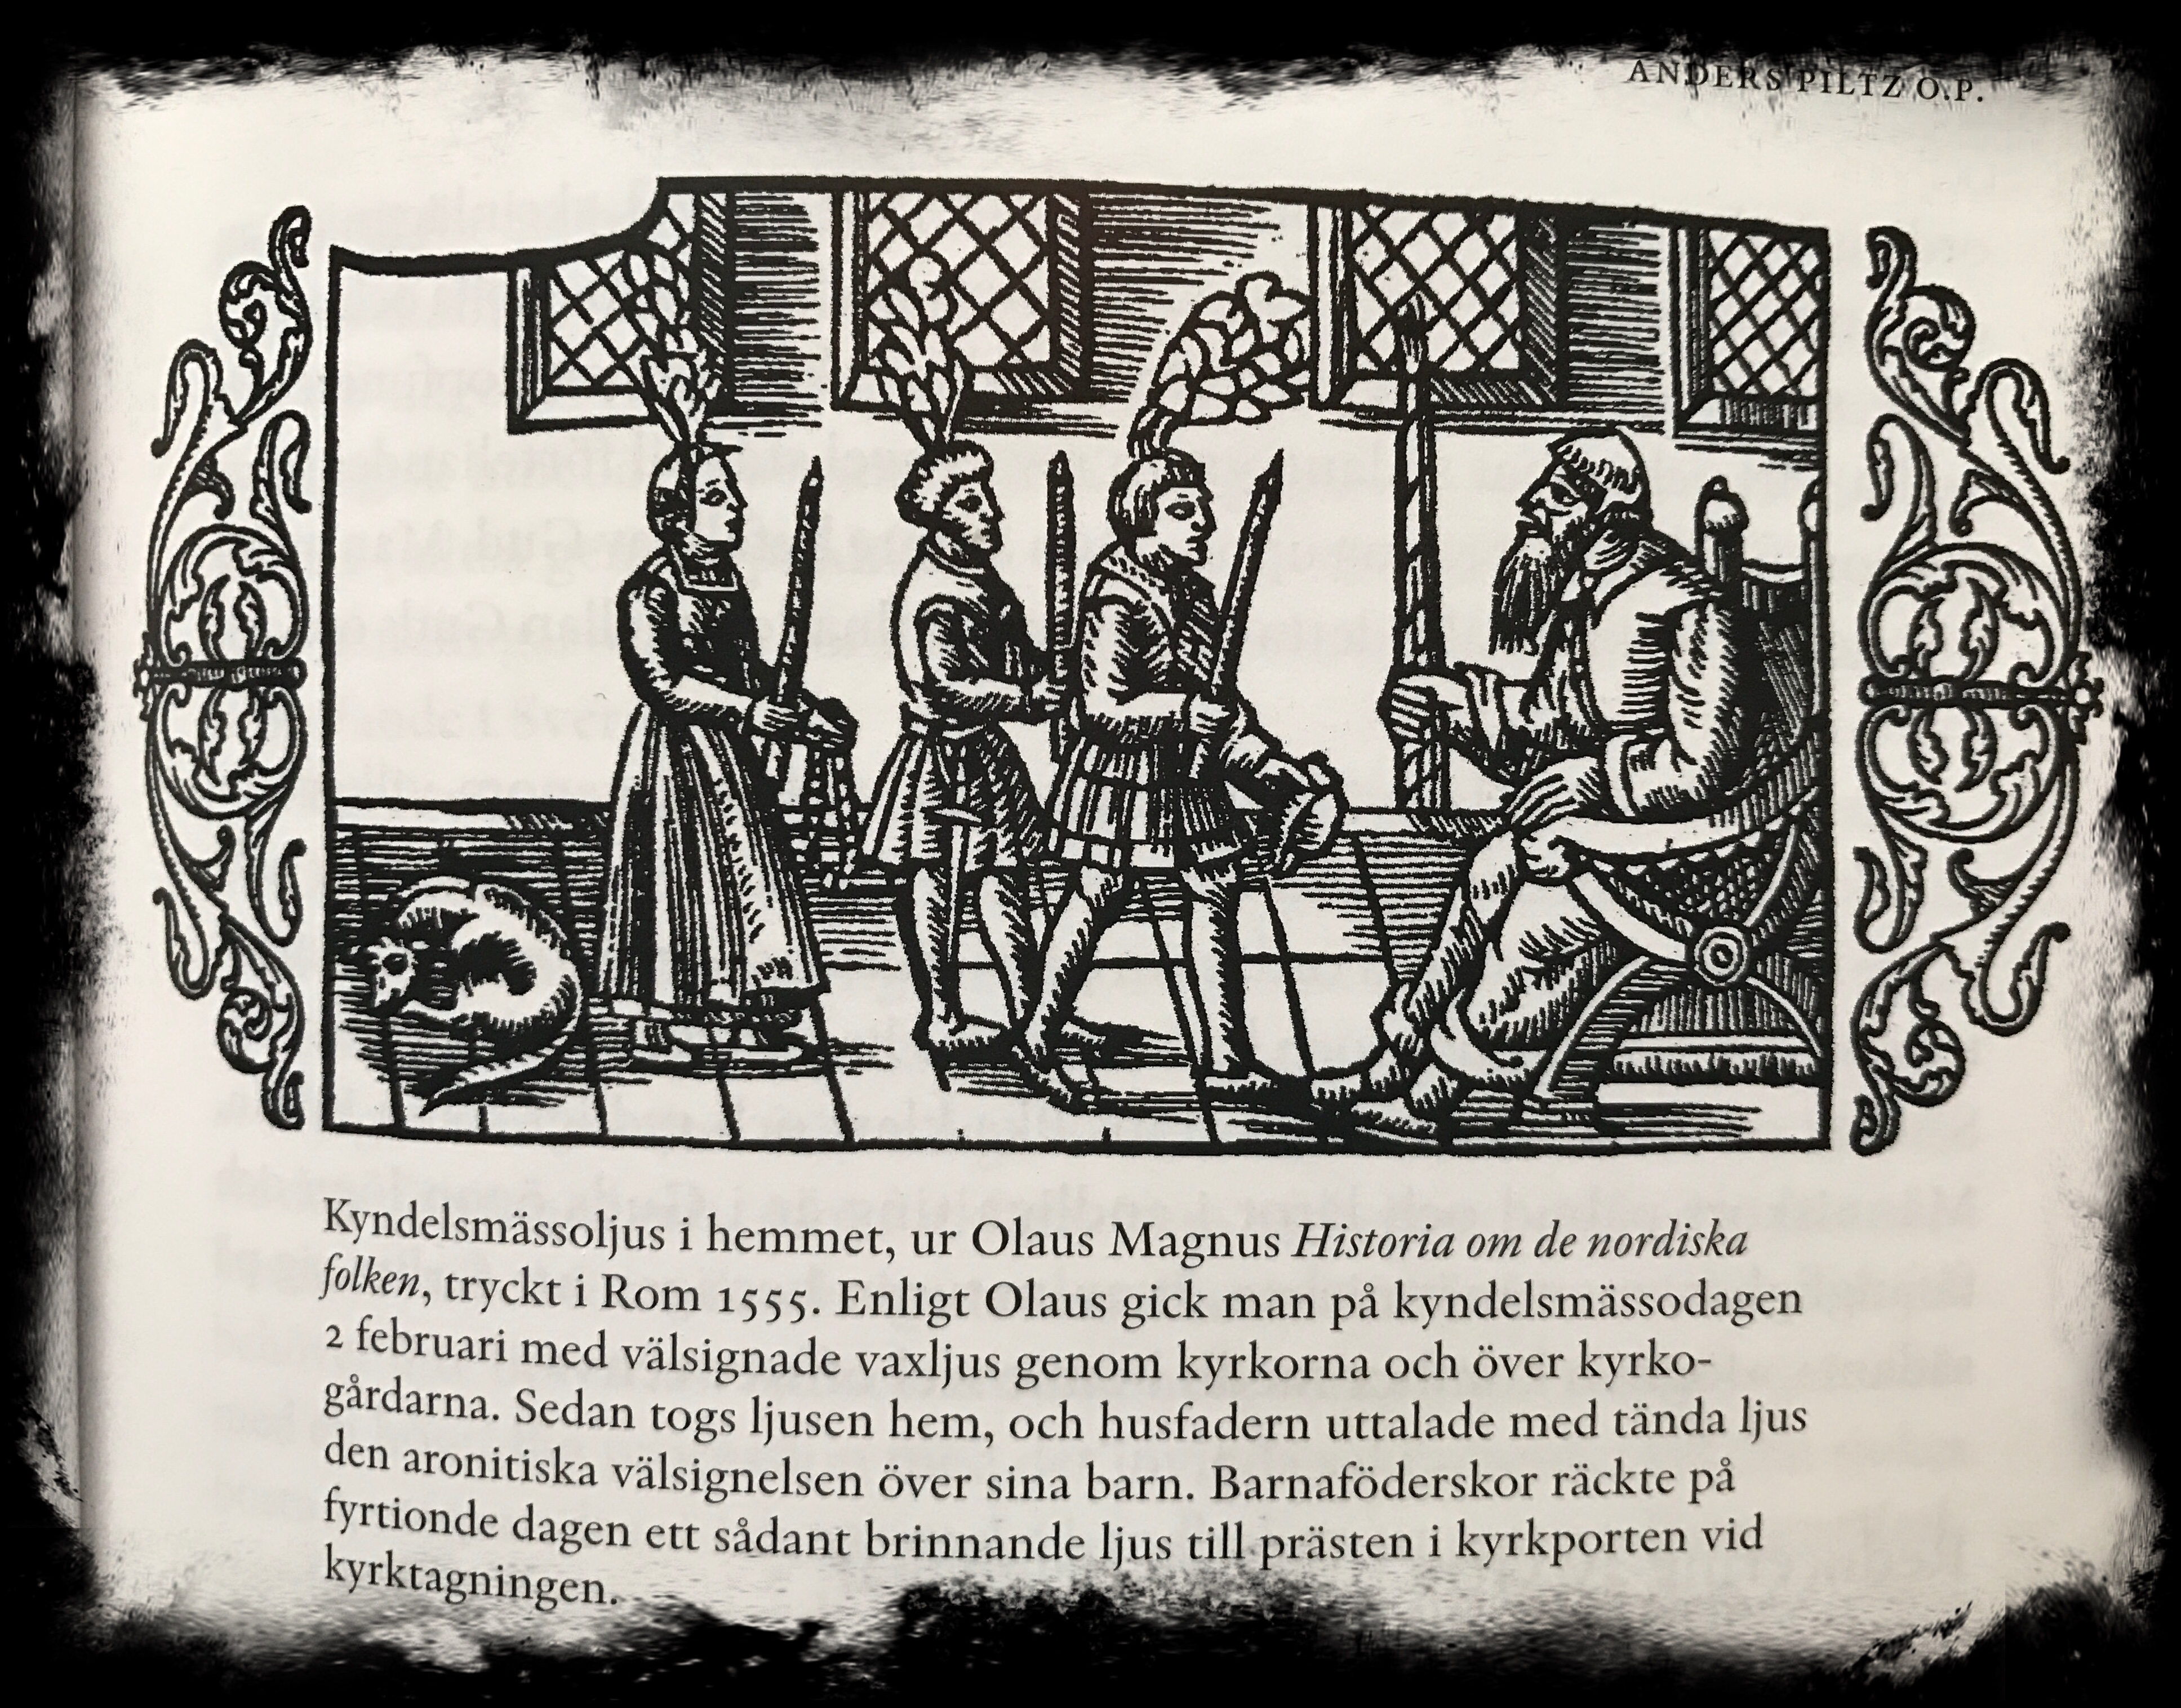 ANDERS PILTZ O.P.
Kyndelsmässoljus i hemmet, ur Olaus Magnus Historia om de nordiska
folken, tryckt i Rom 1555. Enligt Olaus gick man på kyndelsmässodagen
2 februari med välsignade vaxljus genom kyrkorna och över kyrko-
gårdarna. Sedan togs ljusen hem, och husfadern uttalade med tända ljus
den aronitiska välsignelsen över sina barn. Barnaföderskor räckte på
fyrtionde dagen ett sådant brinnande ljus till prästen i kyrkporten vid
kyrktagningen.